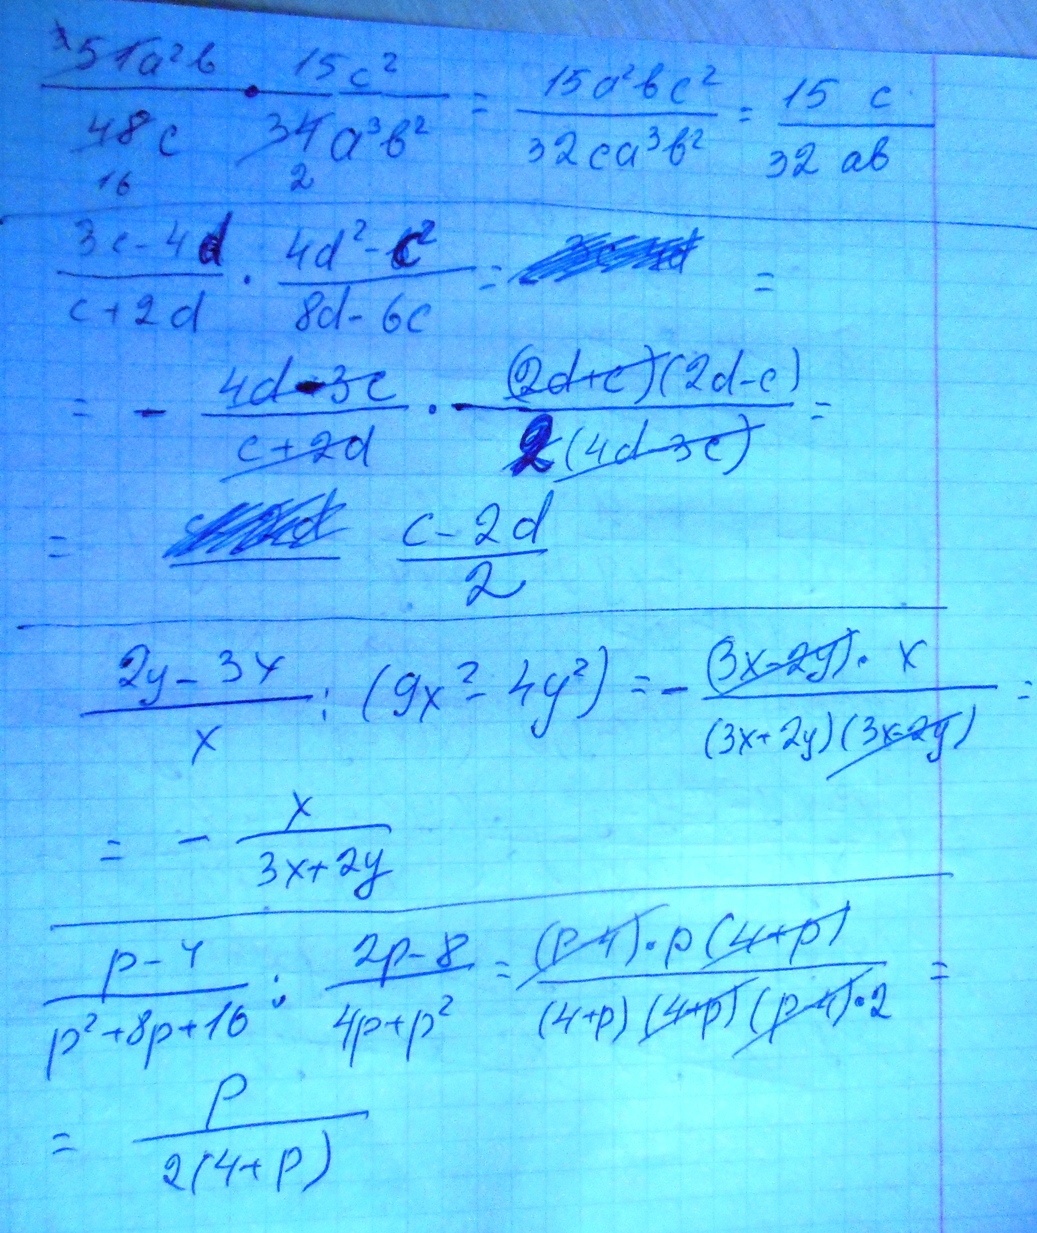 51a²b/48c · 15c²/34a³b² = 15a²bc²/32ca³b² = 15 c/32 ab
16 2
3c-4d/c+2d · 4d²-c²/8d-6c = =
= - 4d-3c/c+2d · (2d+c)(2d-c)/2(4d-3c) =
= c-2d/2
2y-3x/x : (9x²-4y²) = - (3x-2y)·x/(3x+2y)(3x-2y) =
= - x/3x+2y
p-4/p²+8p+16 : 2p-8/4p+p² = (p-4)·p(4+p)/(4+p)(4+p)(p-4)·2 =
= p/2(4+p)